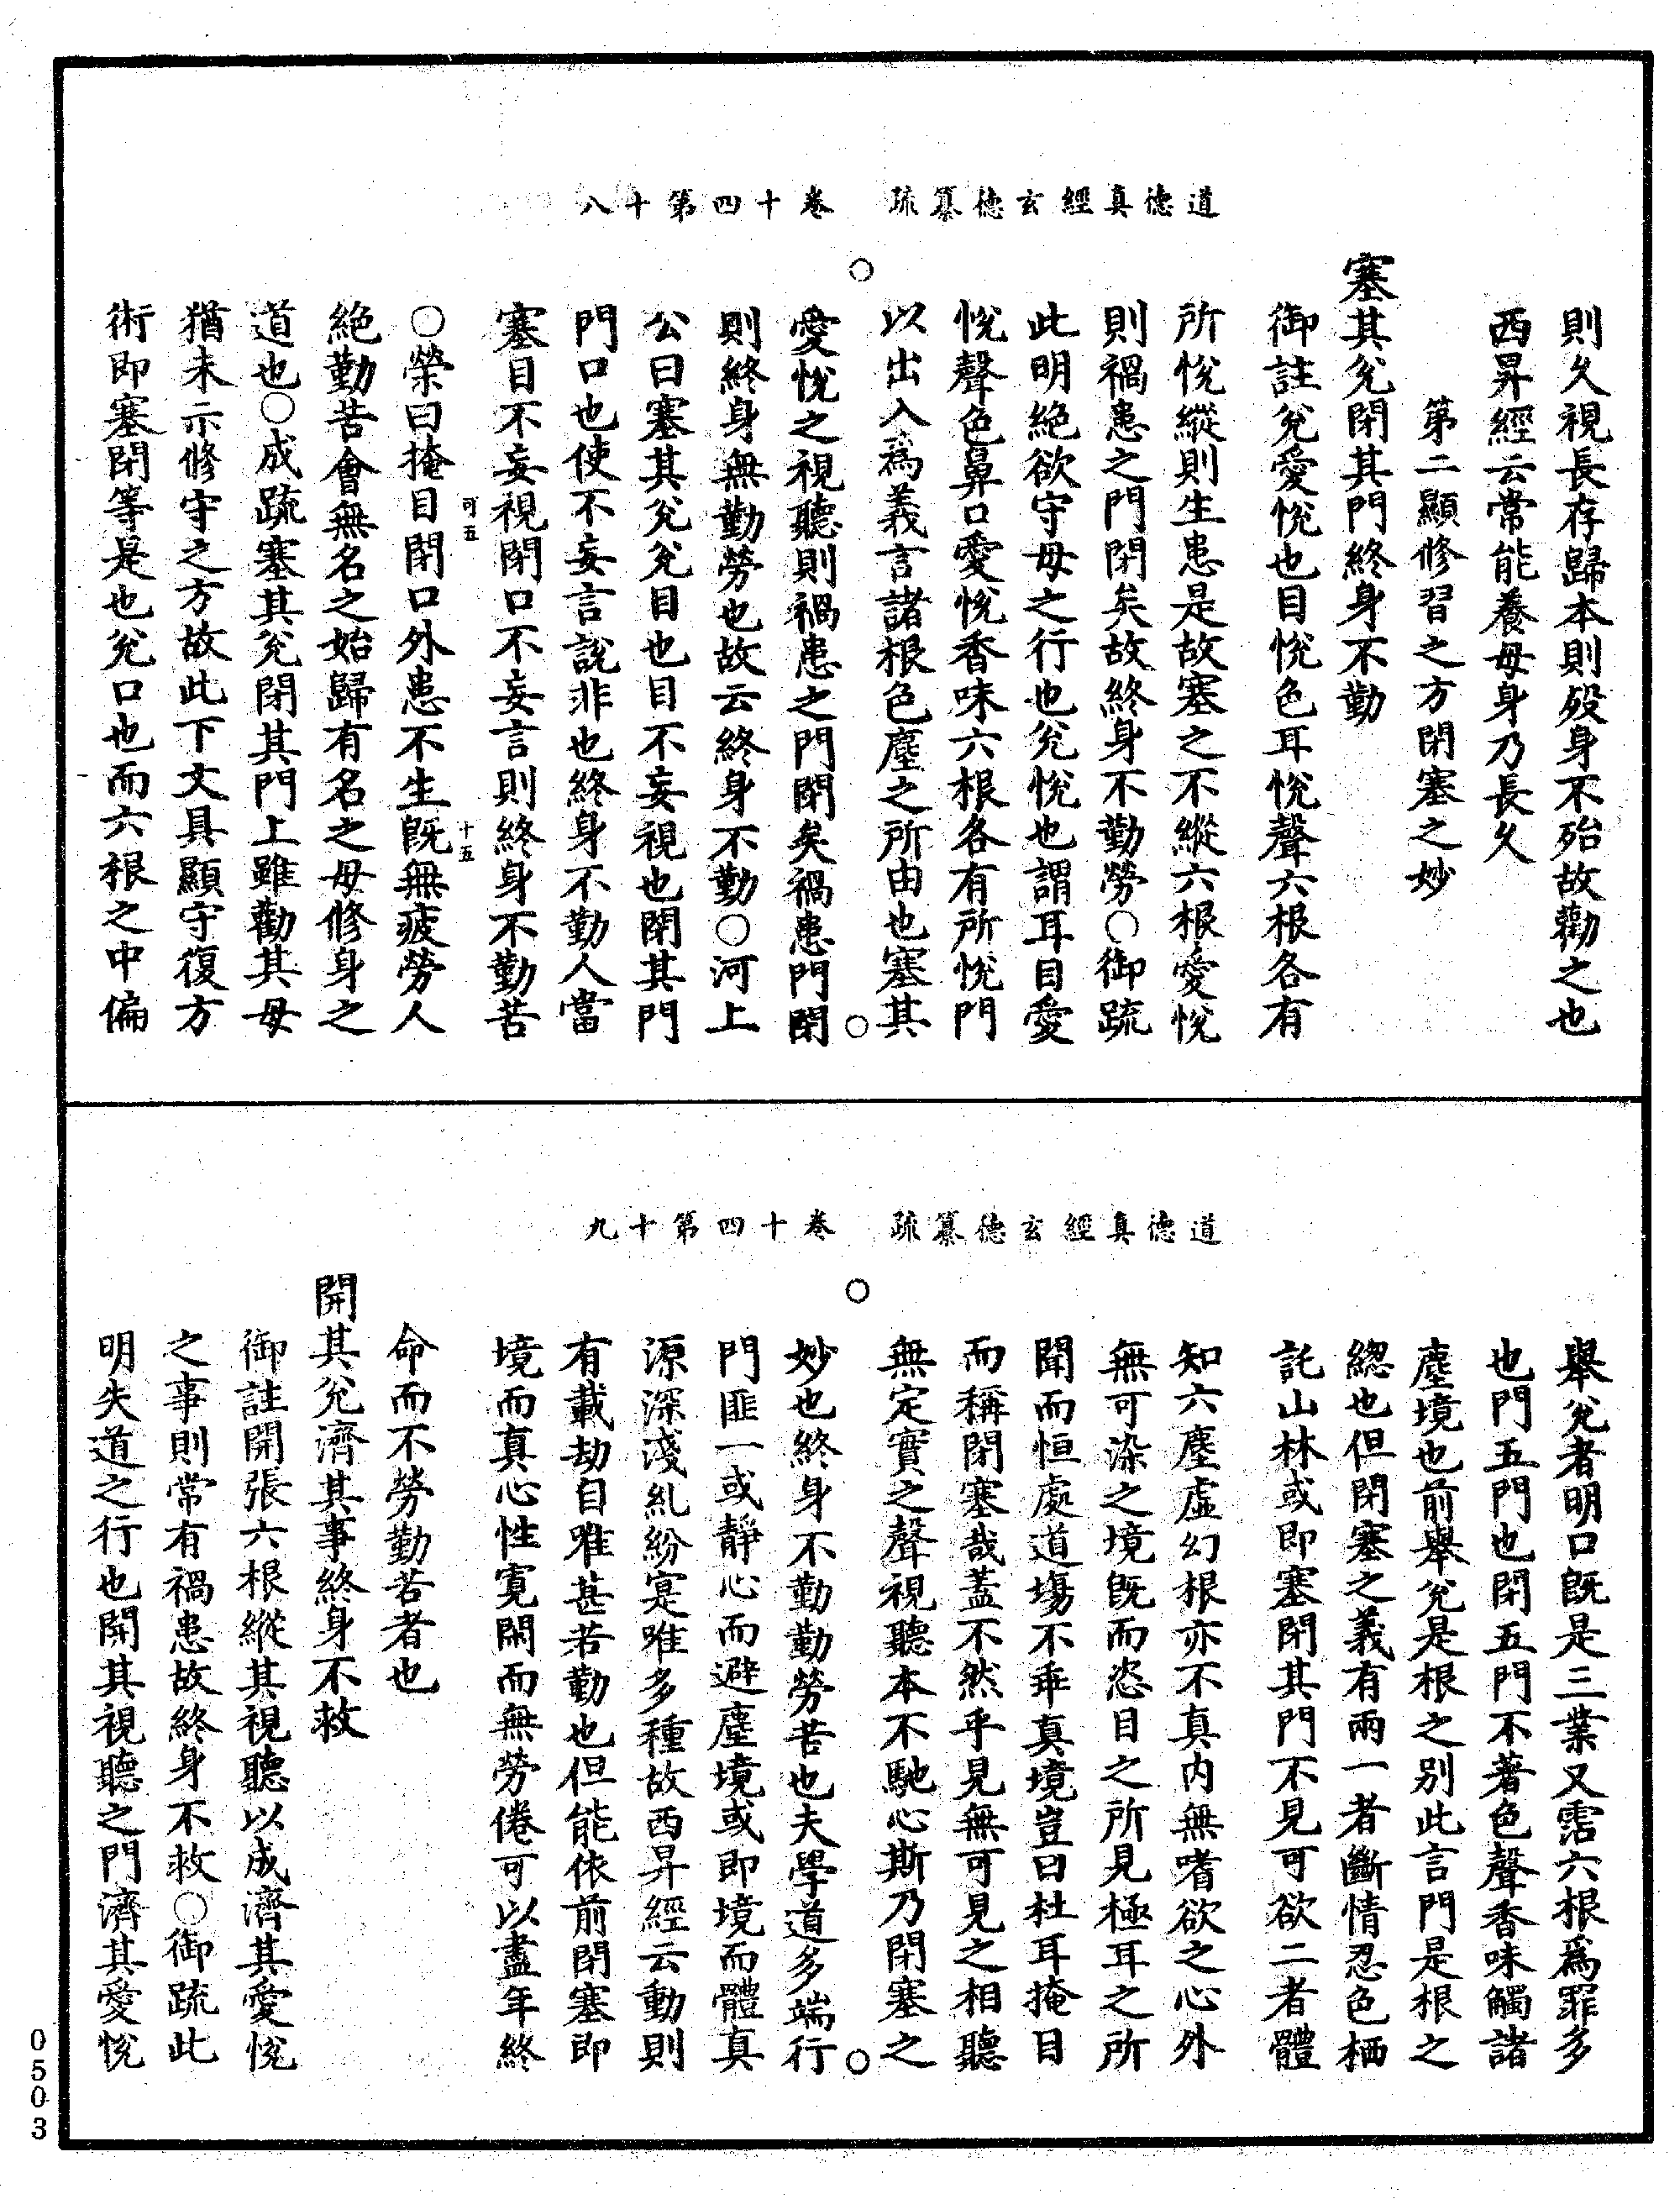 道德真經玄德纂疏　卷十四第十八
則久視長存歸本則歿身不殆故勸之也
西昇經云常能養母身乃長久
第二顯修習之方閉塞之妙
塞其兊閉其門終身不勤
御註兊愛悅也目悅色耳悅聲六根各有
所悅縱則生患是故塞之不縱六根愛悅
則禍患之門閉矣故終身不勤勞○御疏
此明絕欲守母之行也兊悅也謂耳目愛
悅聲色鼻口愛悅香味六根各有所悅門
以出入爲義言諸根色塵之所由也塞其
愛悅之視聽則禍患之門閉矣禍患門閉
則終身無勤勞也故云終身不勤○河上
公曰塞其兊兊目也目不妄視也閉其門
門口也使不妄言說非也終身不勤人當
塞目不妄視閉口不妄言則終身不勤苦
可五　十五
○榮曰掩目閉口外患不生旣無疲勞人
絕勤苦會無名之始歸有名之母修身之
道也○成疏塞其兊閉其門上雖勸其母
猶未示修守之方故此下文具顯守復方
術即塞閉等是也兊口也而六根之中偏
道德真經玄德纂疏　卷十四第十九
舉兊者明口旣是三業又霑六根爲罪多
也門五門也閉五門不著色聲香味觸諸
塵境也前舉兊是根之別此言門是根之
總也但閉塞之義有兩一者斷情忍色栖
託山林或即塞閉其門不見可欲二者體
知六塵虛幻根亦不真內無嗜欲之心外
無可染之境旣而恣目之所見極耳之所
聞而恒處道塲不乖真境豈曰杜耳掩目
而稱閉塞哉蓋不然乎見無可見之相聽
無定實之聲視聽本不馳心斯乃閉塞之
妙也終身不勤勤勞苦也夫學道多端行
門匪一或靜心而避塵境或即境而體真
源深淺糺紛寔唯多種故西昇經云動則
有載劫自唯甚苦勤也但能依前閉塞即
境而真心性寬閑而無勞倦可以盡年終
命而不勞勤苦者也
開其兊濟其事終身不救
御註開張六根縱其視聽以成濟其愛悅
之事則常有禍患故終身不救○御疏此
明失道之行也開其視聽之門濟其愛悅
0503